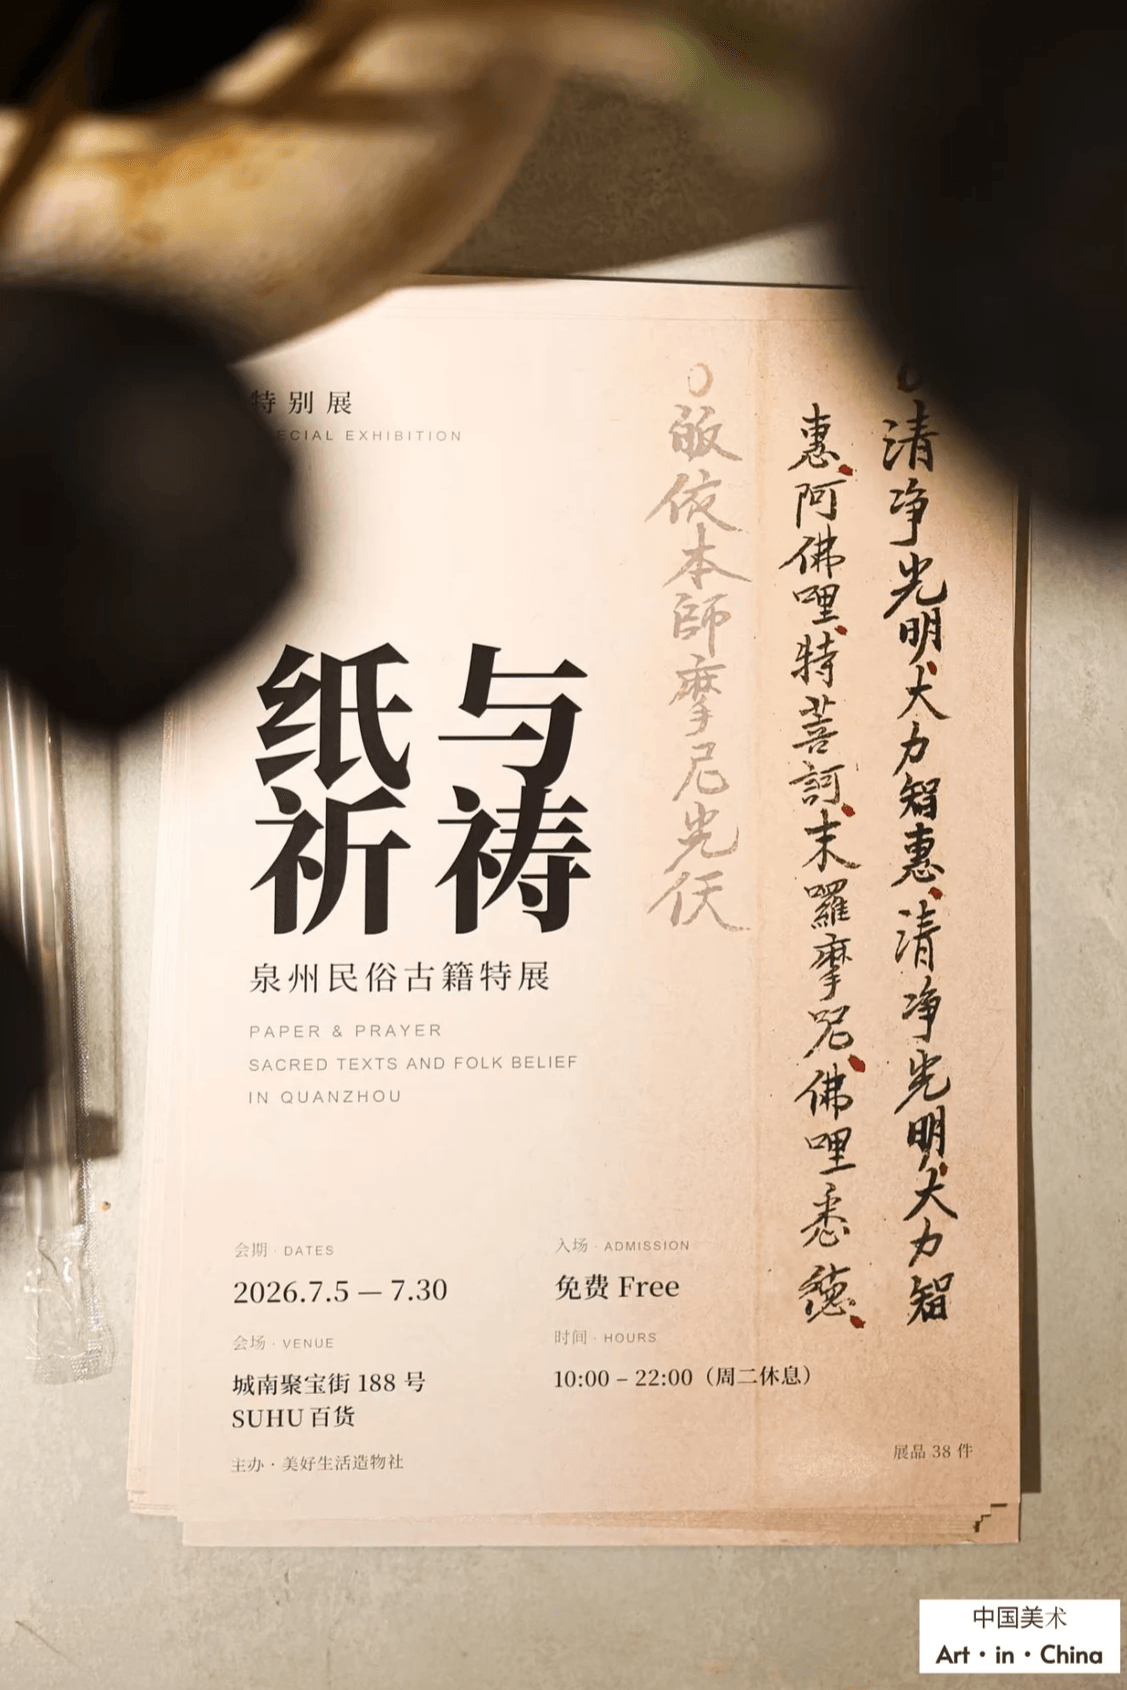 特别展
SPECIAL EXHIBITION
纸与
祈祷
泉州民俗古籍特展
PAPER & PRAYER
SACRED TEXTS AND FOLK BELIEF
IN QUANZHOU
会期 · DATES
2026.7.5 — 7.30
入场 · ADMISSION
免费 Free
会场 · VENUE
城南聚宝街 188 号
SUHU 百货
时间 · HOURS
10:00 – 22:00（周二休息）
主办 · 美好生活造物社
展品 38 件
清净光明大力智惠清净光明大力智
惠阿佛哩特菩訶末囉摩咒佛哩悉德
皈依本師摩尼光佛
中国美术
Art · in · China